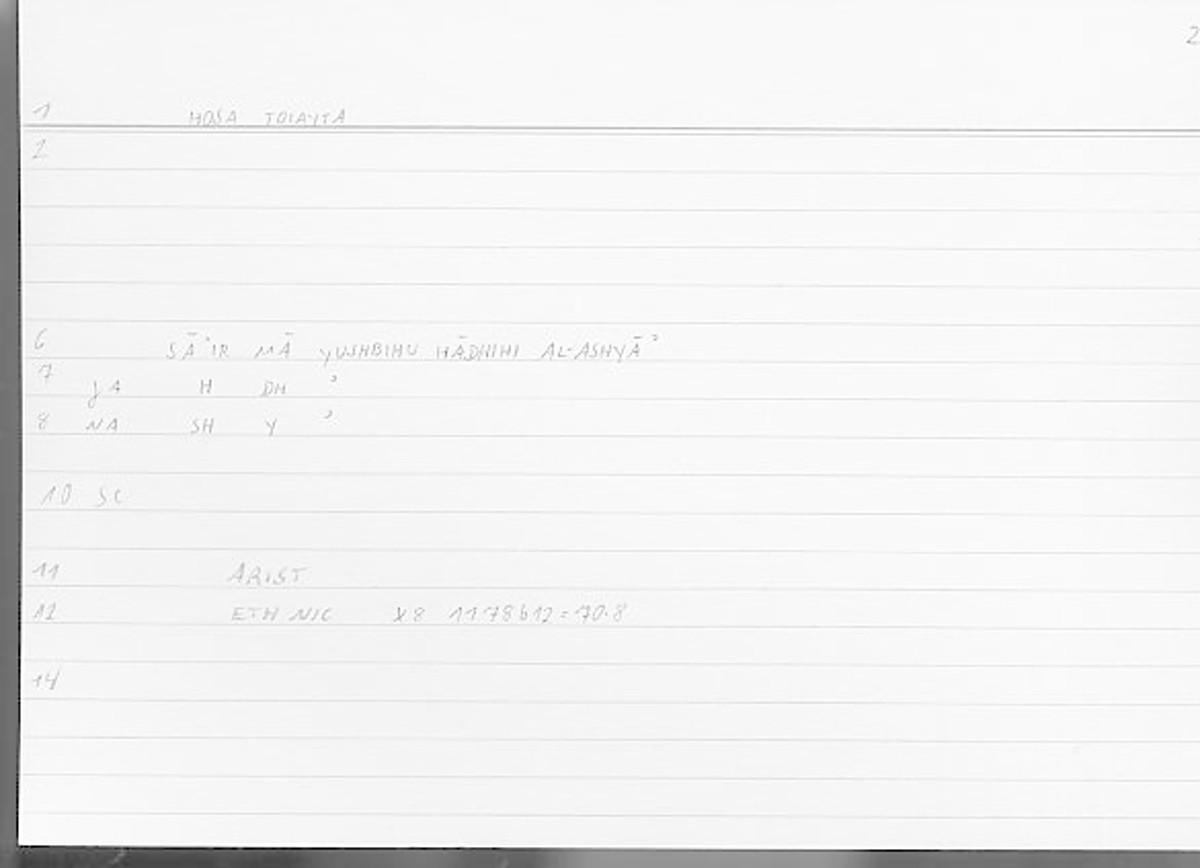 2
1 HOSA TOIAYTA
2
6 SĀʾIR MĀ YUSHBIHU HĀDHIHI AL-ASHYĀʾ
7 JA H DH ʾ
8 NA SH Y ʾ
10 SC
11 ARIST
12 ETH NIC X8 1178b12=70.8
14